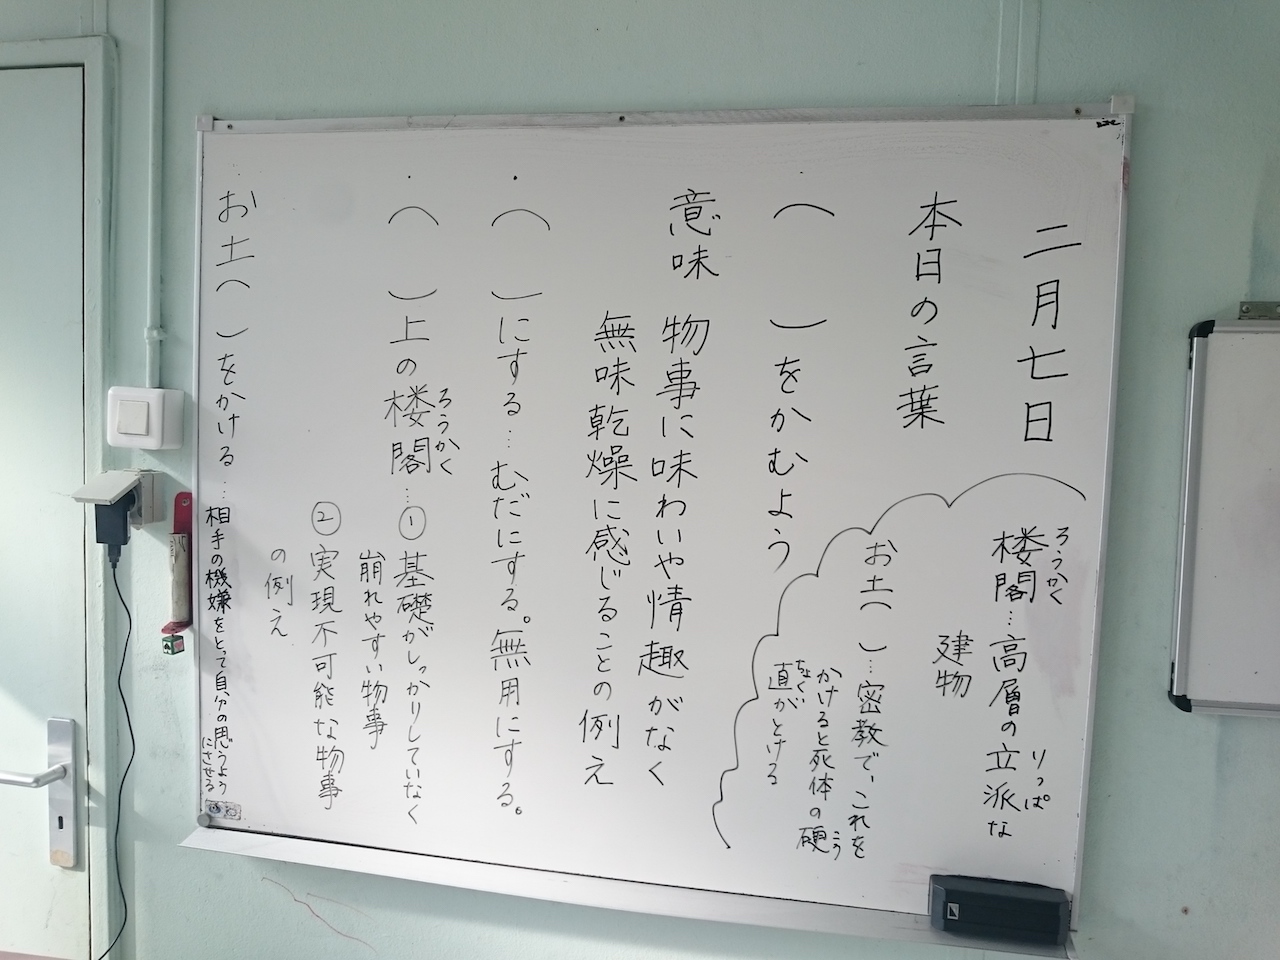 二月七日
本日の言葉
（　　）をかむよう
意味　物事に味わいや情趣がなく
無味乾燥に感じることの例え
（　　）にする…むだにする。無用にする。
（　　）上の楼閣…①基礎がしっかりしていなく
ろうかく
崩れやすい物事
②実現不可能な物事
の例え
お土（　）をかける…相手の機嫌をとって自分の思うよう
にさせる
楼閣…高層の立派な
ろうかく
りっぱ
建物
お土（　）…密教で、これを
かけると死体の硬
こう
直がとける
ちょく